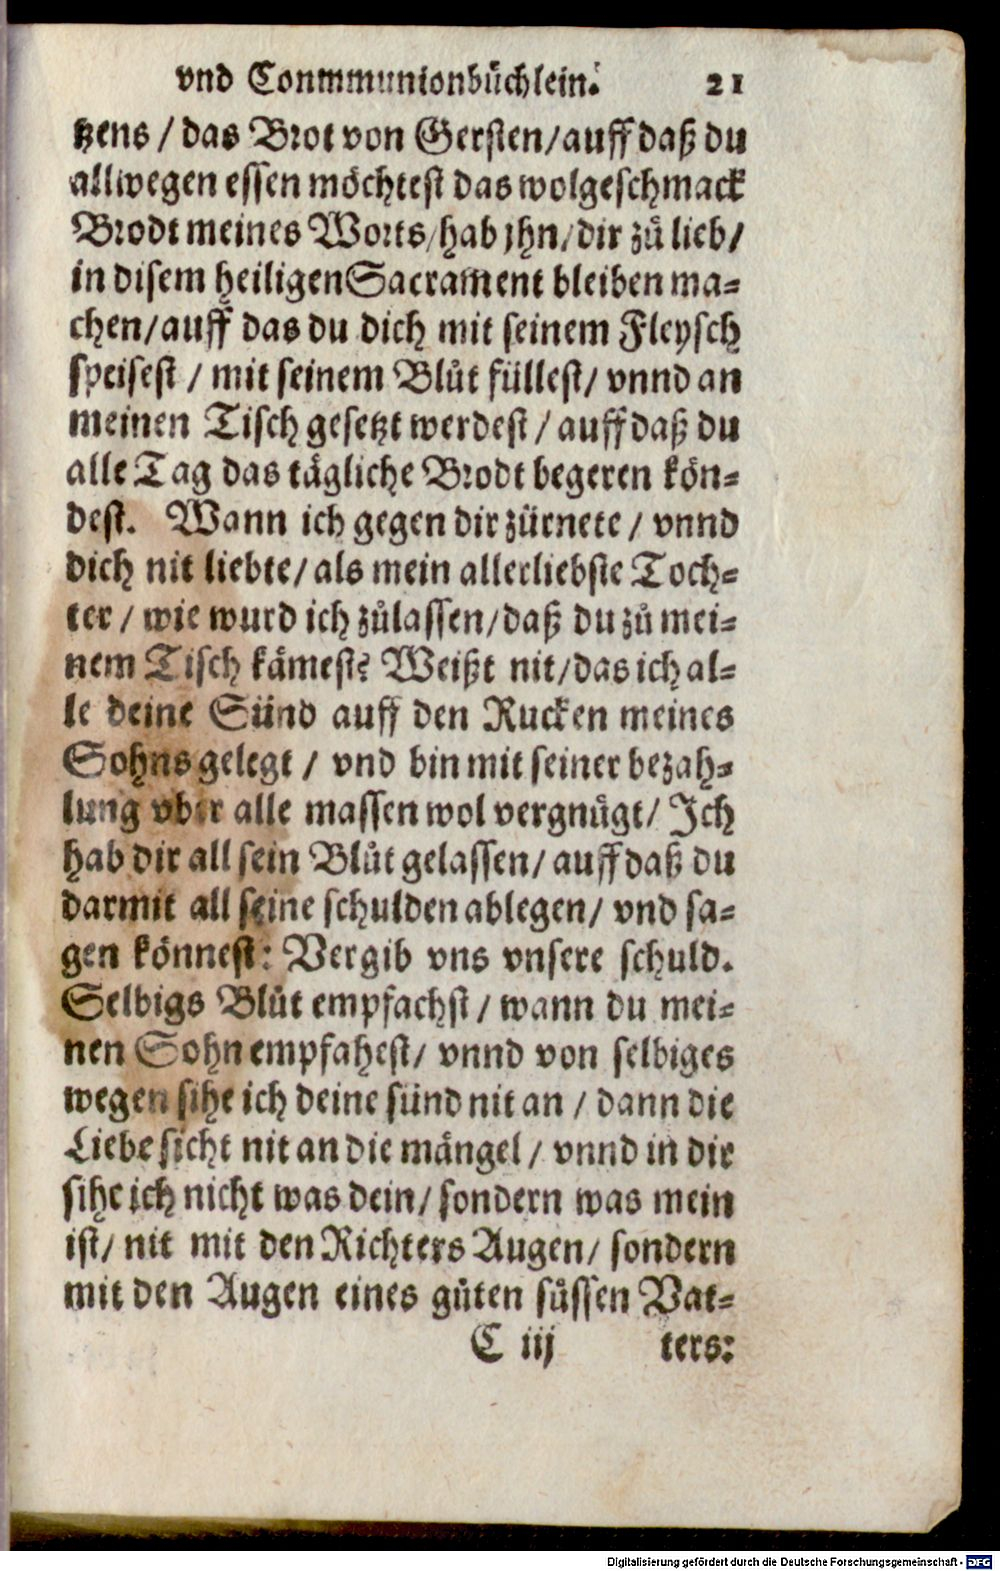 vnd Conmmunionbüchlein. 21
tzens / das Brot von Gersten / auff daß du
allwegen essen möchtest das wolgeschmack
Brodt meines Worts / hab jhn / dir zů lieb /
in disem heiligen Sacrament bleiben ma-
chen / auff das du dich mit seinem Fleysch
speisest / mit seinem Blůt füllest / vnnd an
meinen Tisch gesetzt werdest / auff daß du
alle Tag das tägliche Brodt begeren kön-
dest. Wann ich gegen dir zürnete / vnnd
dich nit liebte / als mein allerliebste Toch-
ter / wie wurd ich zůlassen / daß du zů mei-
nem Tisch kämest? Weißt nit / das ich al-
le deine Sünd auff den Rucken meines
Sohns gelegt / vnd bin mit seiner bezah-
lung vber alle massen wol vergnügt / Ich
hab dir all sein Blůt gelassen / auff daß du
darmit all seine schulden ablegen / vnd sa-
gen könnest: Vergib vns vnsere schuld.
Selbigs Blůt empfachst / wann du mei-
nen Sohn empfahest / vnnd von selbiges
wegen sihe ich deine sünd nit an / dann die
Liebe sicht nit an die mängel / vnnd in dir
sihe ich nicht was dein / sondern was mein
ist / nit mit den Richters Augen / sondern
mit den Augen eines gůten süssen Vat-
C iij ters:
Digitalisierung gefördert durch die Deutsche Forschungsgemeinschaft - DFG